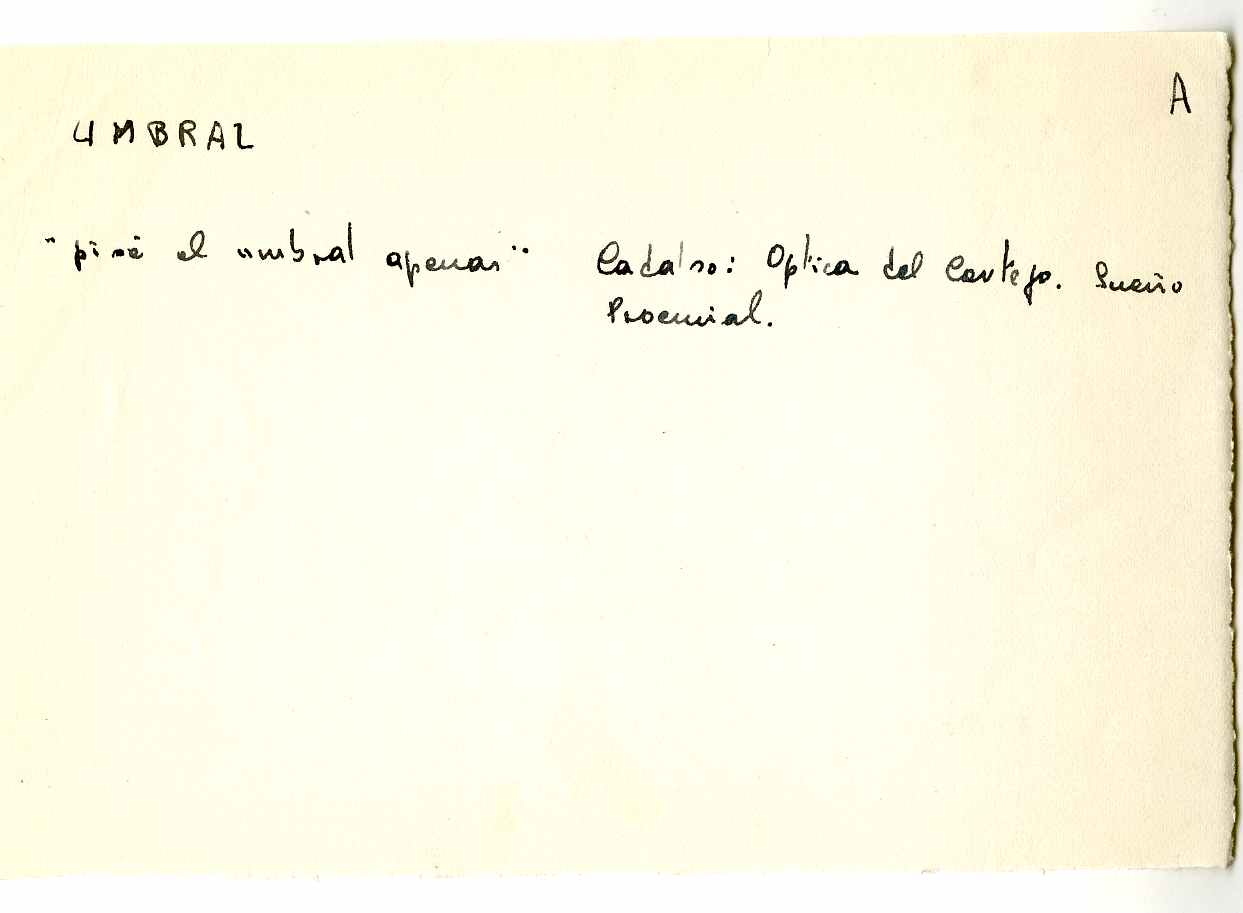 A
UMBRAL
"pisé el umbral apenas" Cadalso: Optica del Cortejo. Sueño
Proemial.